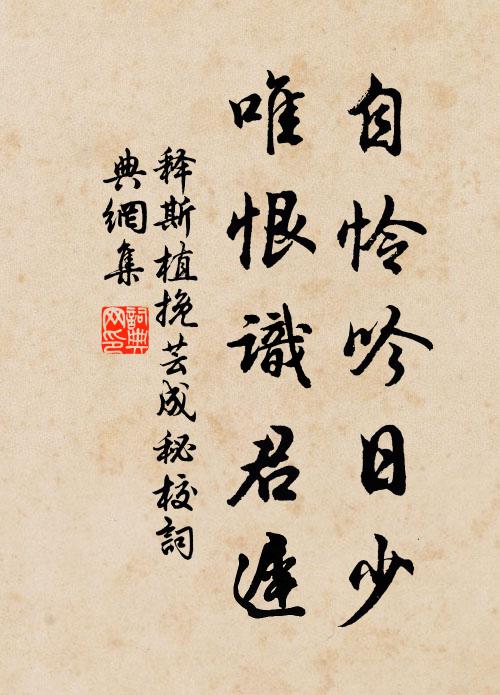 自怜吟日少
唯恨識君遲
释斯植挽芸成秘校詞
典網集
詞典
网印